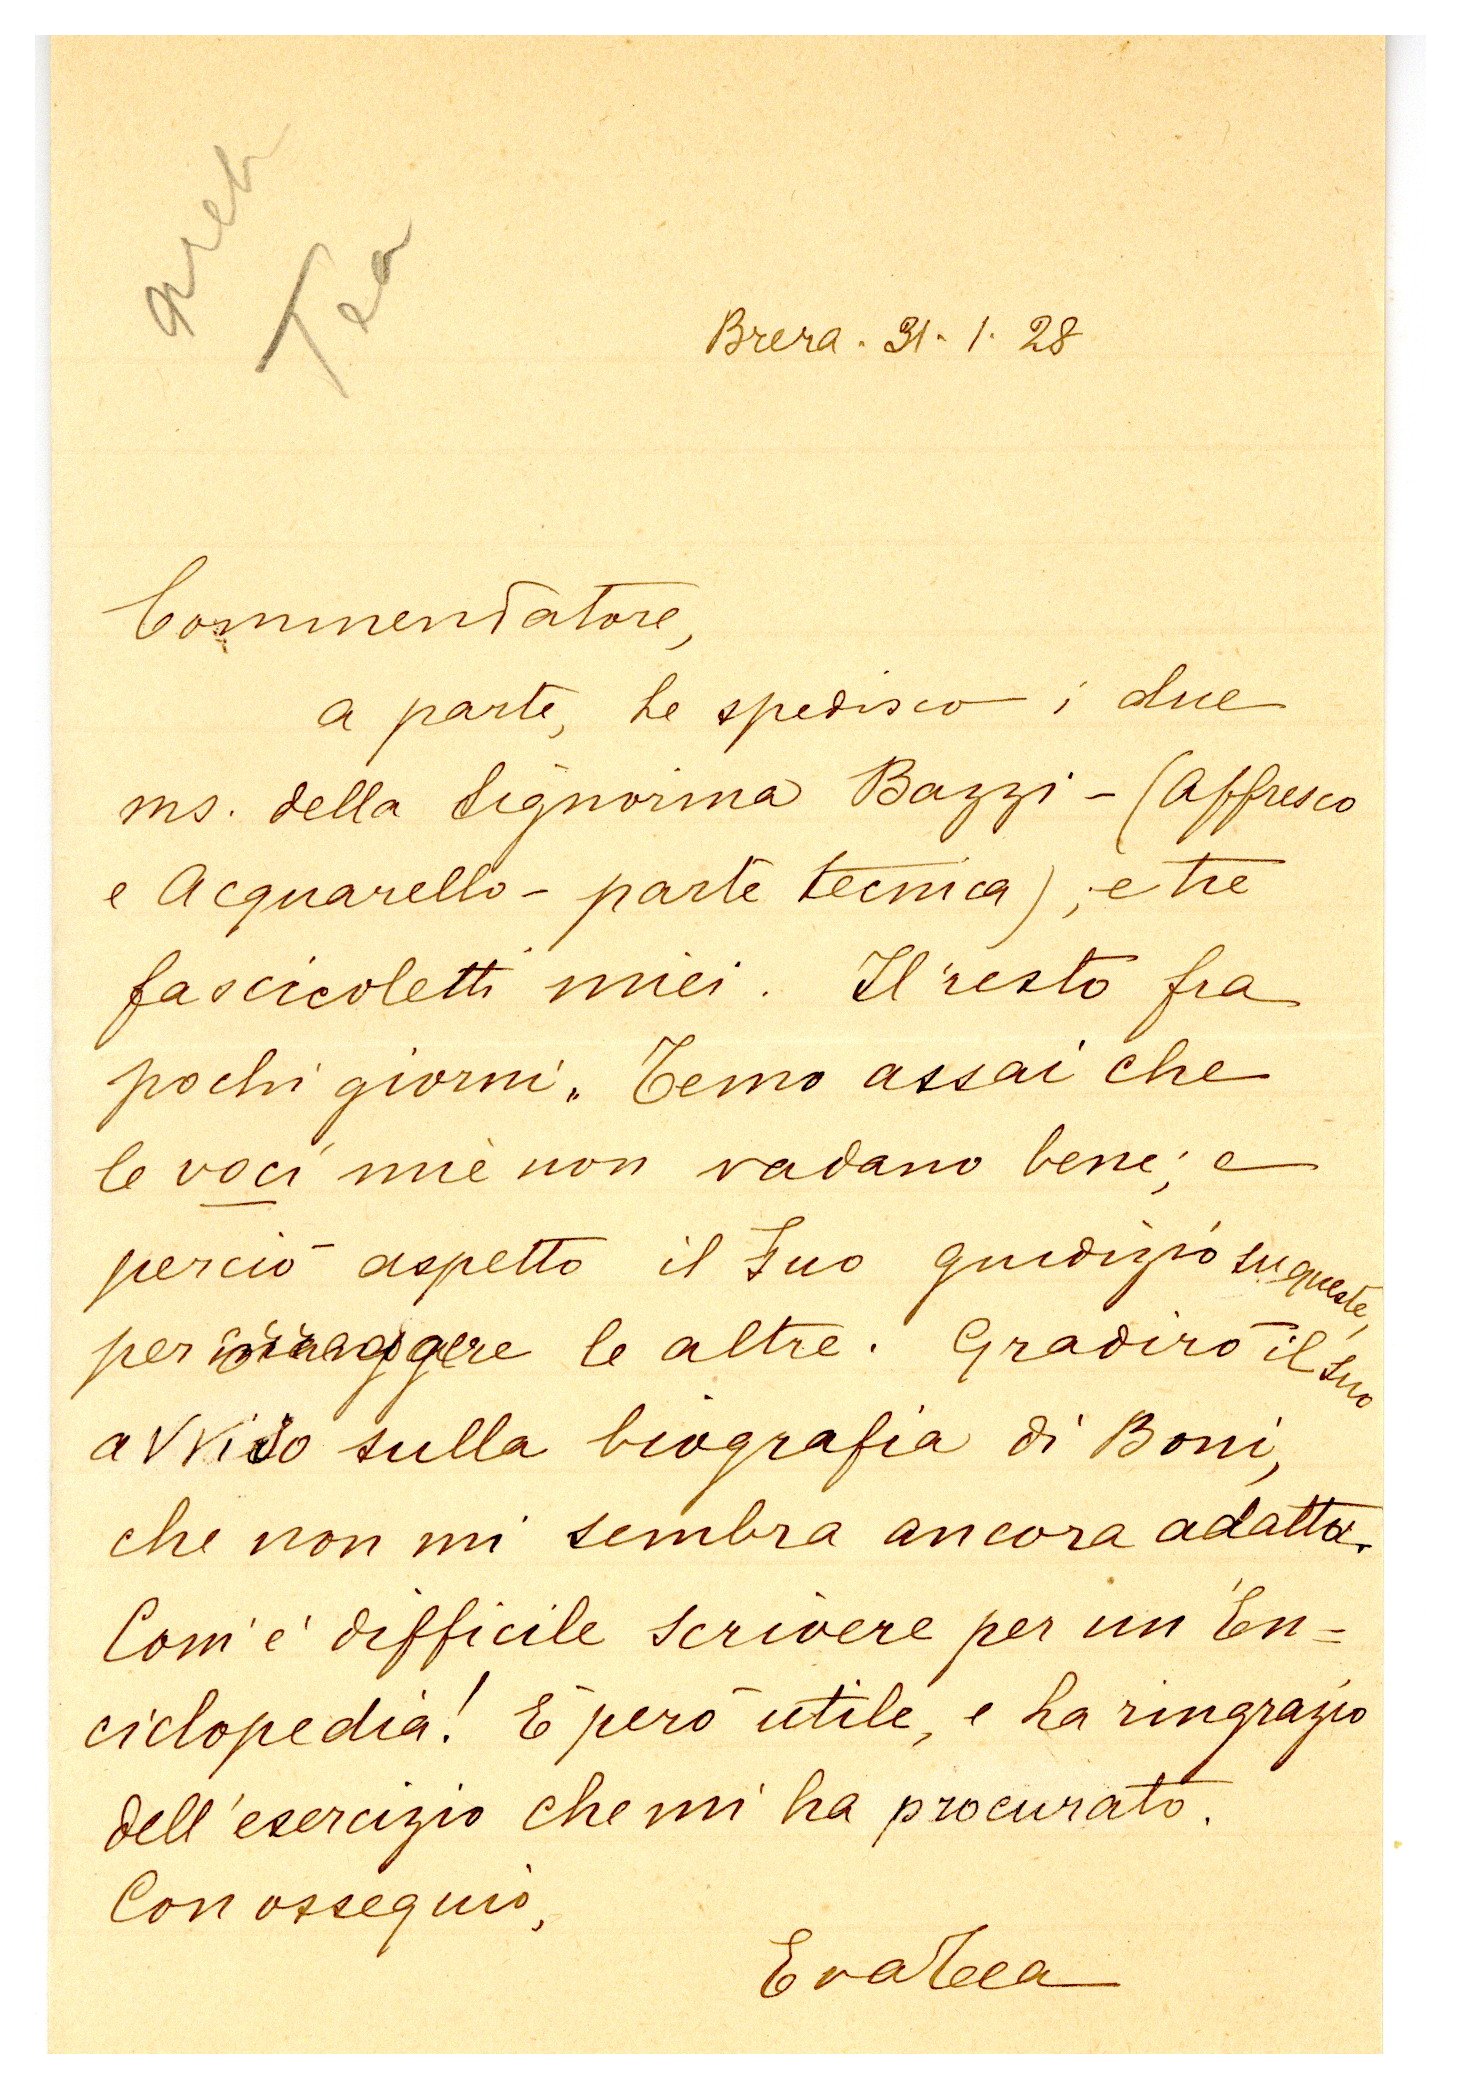 Tea
Brera. 31. 1. 28
Commendatore,
a parte, Le spedisco i due
ms. della Signorina Bazzi - (Affresco
e Acquarello - parte tecnica); e tre
fascicoletti miei. Il resto fra
pochi giorni. Temo assai che
le voci mie non vadano bene; e
perciò aspetto il Suo giudizio su queste,
per le altre. Gradirò il Suo
avviso sulla biografia di Boni,
che non mi sembra ancora adatta.
Com'è difficile scrivere per un'En=
ciclopedia! È però utile, e La ringrazio
dell'esercizio che mi ha procurato.
Con ossequio,
Eva Tea